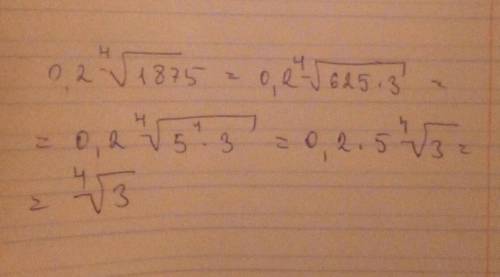 0,2 ⁴√1875 = 0,2 ⁴√625·3 =
= 0,2 ⁴√5⁴·3 = 0,2·5 ⁴√3 =
= ⁴√3